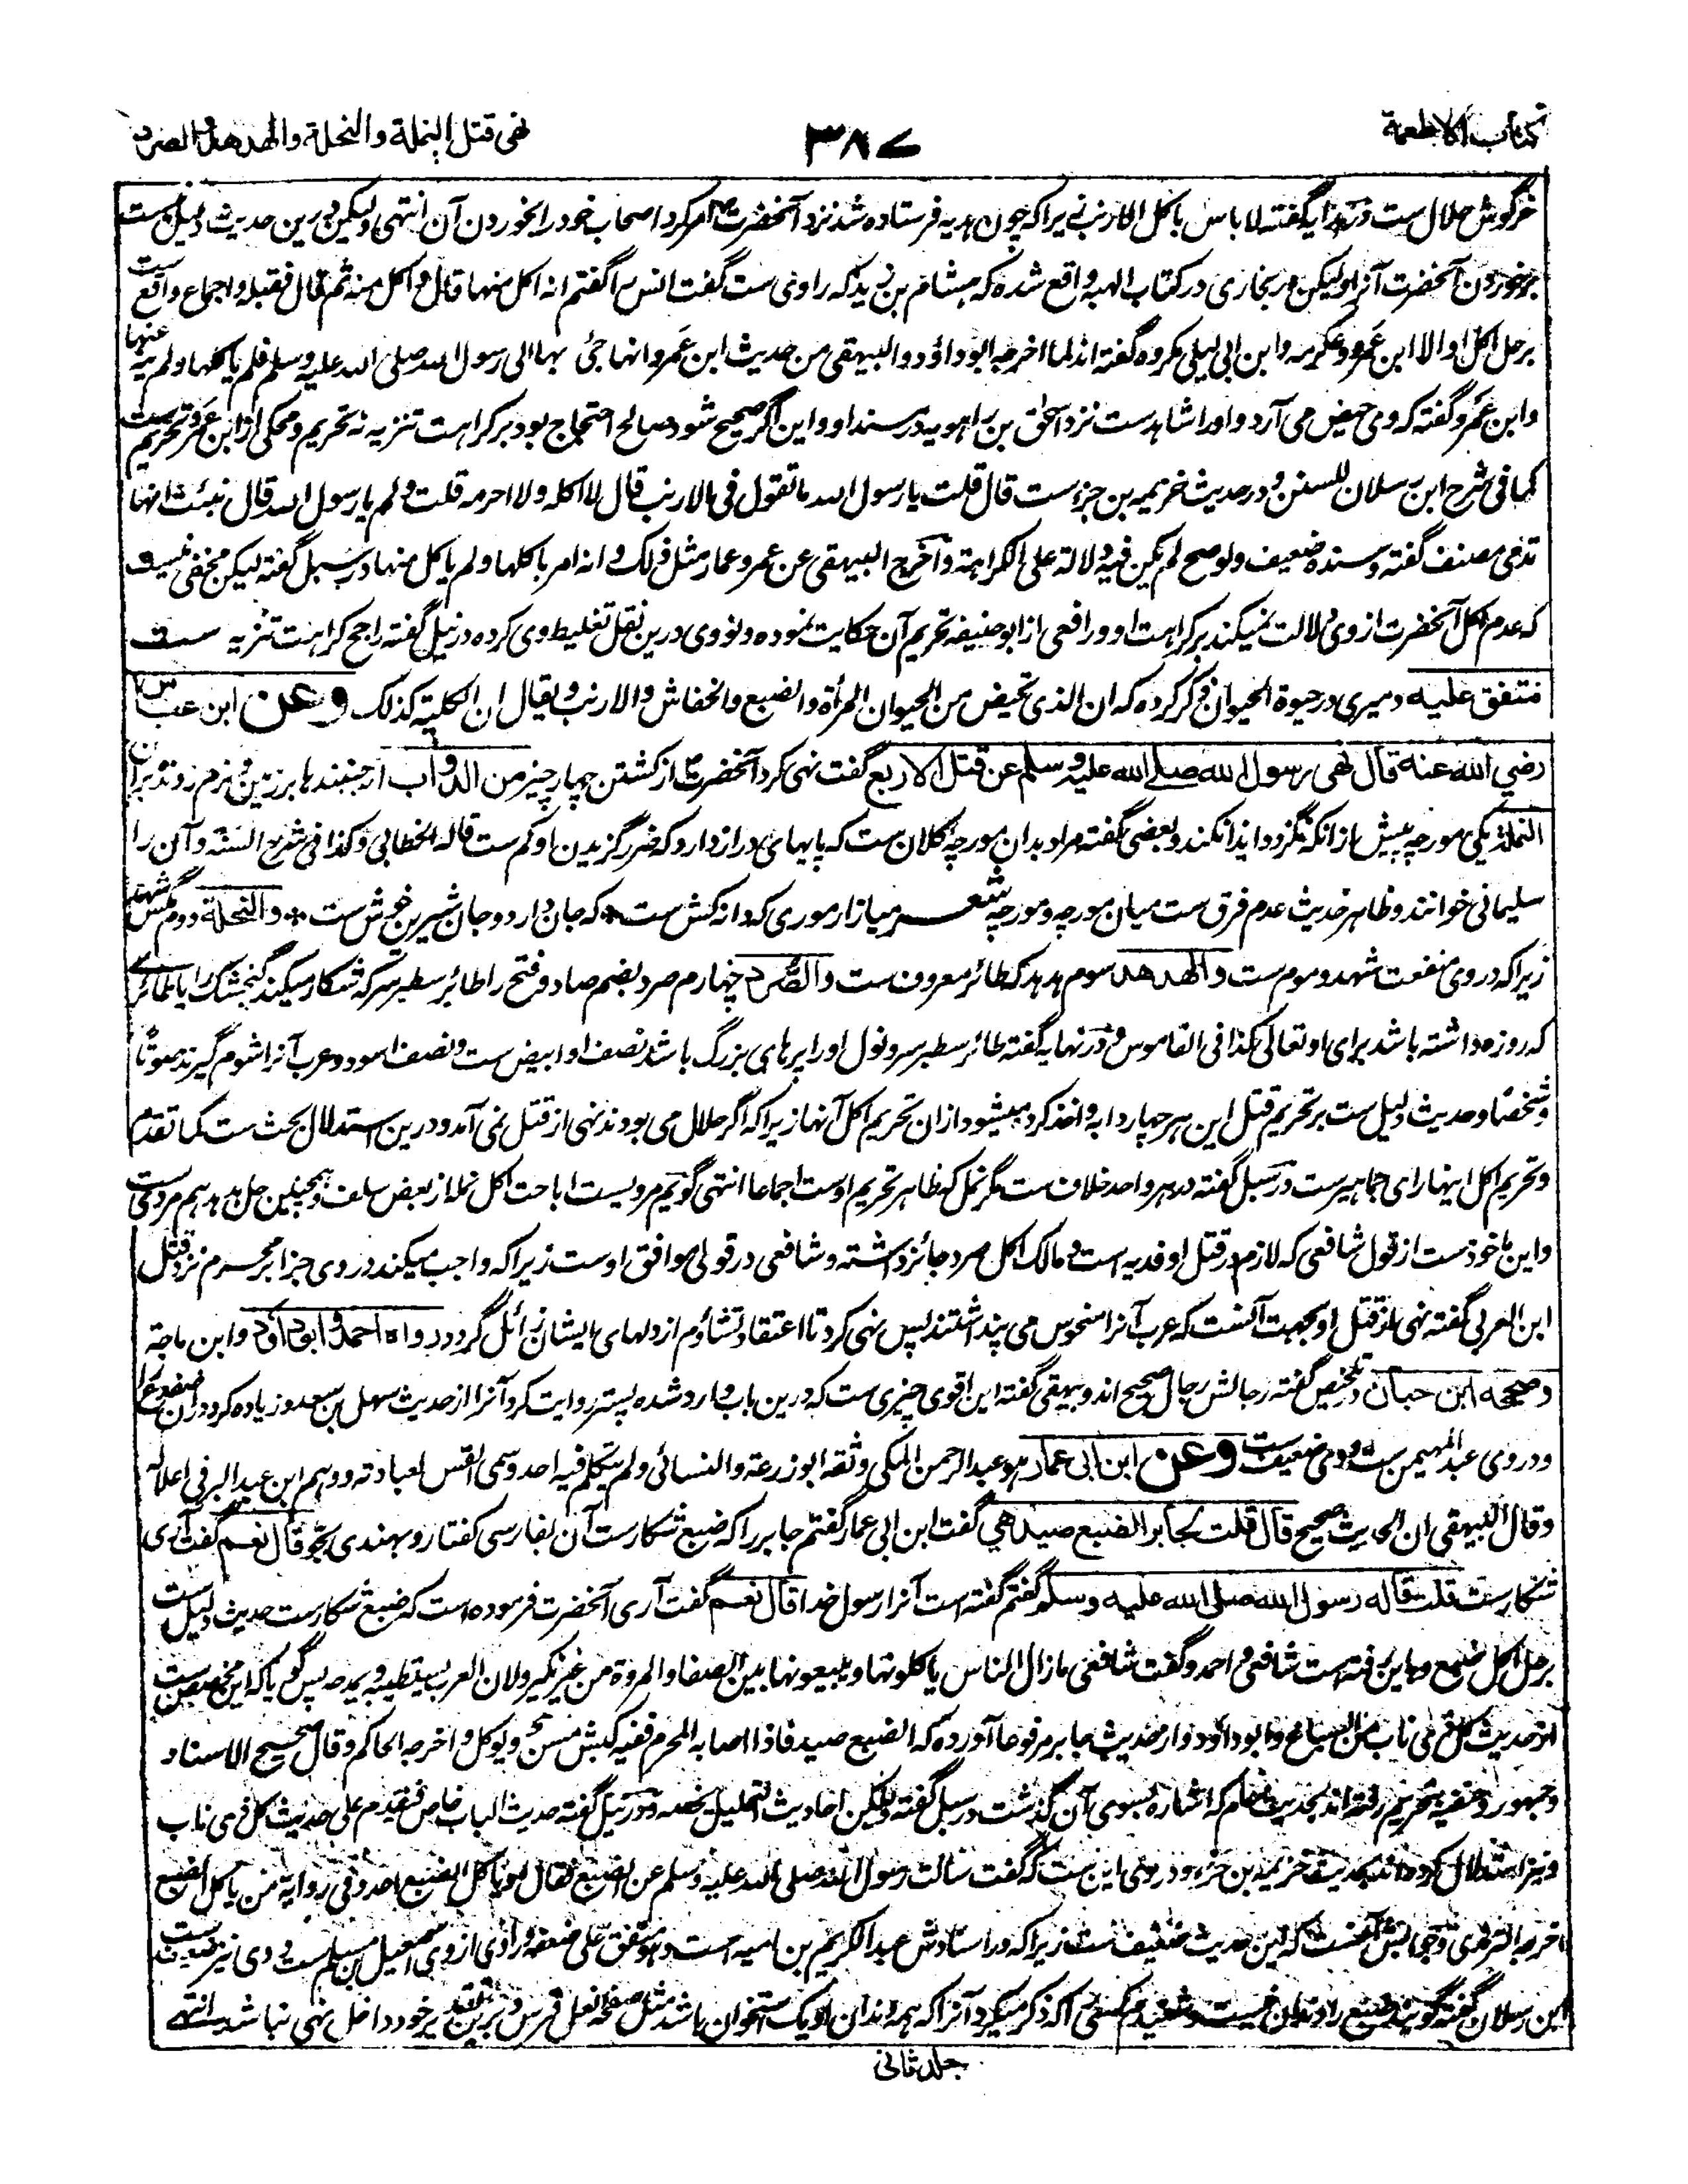 كتاب الاطعمة
۳۸۷
نهى قتل النملة والنحلة والهدهد والصرد
خرگوش حلال ست در هدایه گفته لا باس باکل الارنب زیرا که چون هدیه فرستاده شد نزد آنحضرت امر کرد اصحاب خود را بخوردن آن انتهی ولیکن درین حدیث دلیل ست
بر خوردن آنحضرت آنرا ولیکن در بخاری در کتاب الهبه واقع شده که هشام بن زید که راوی ست گفت انس را گفتم انه اکل منها قال و اکل منه ثم قال فقبله و اجماع واقع ست
بر حل اکل او الا ابن عمرو و عکرمه و ابن ابی لیلی مکروه گفته اند لما اخرجه ابو داؤد والبیهقی من حدیث ابن عمرو انها جئ بها الی رسول الله صلی الله علیه وسلم فلم یاکلها ولم ینه عنها
و ابن عمرو گفته که وی حیض می آرد و او را شاهد ست نزد اسحٰق بن راهویه در سند او و این اگر صحیح شود صالح احتجاج بود بر کراهت تنزیه نه تحریم و محکی از ابن عمرو تحریم ست
کما فی شرح ابن رسلان للسنن و در حدیث خزیمه بن جزء ست قال قلت یا رسول الله ما تقول فی الارنب قال لا اکله ولا احرمه قلت ولم یا رسول الله قال نبئت انها
تدمی مصنف گفته و سنده ضعیف ولو صح لم یکن فیه دلالة علی الکراهة و اخرج البیهقی عن عمر و عمار مثل ذلک و انه امر باکلها ولم یاکل منها در سبل گفته لیکن مخفی نیست
که عدم اکل آنحضرت از وی دلالت نمیکند بر کراهت او و رافعی از ابو حنیفه تحریم آن حکایت نموده و نووی درین نقل تغلیط وی کرده در نیل گفته راجح کراهت تنزیه ست
متفق علیه دمیری در حیوة الحیوان ذکر کرده که ان الذی تحیض من الحیوان المرأة والضبع والخفاش والارنب و یقال ان الکلبة کذلک وعن ابن عباس
رضي الله عنه قال نهى رسول الله صلے الله علیه وسلم عن قتل الاربع گفت نهی کرد آنحضرت از کشتن چهار چیز من الدواب از جنبندها بر زمین و نرم روندبران
النملة یکی مورچه پیش از انکه بگزد و ایذا نکند و بعضی گفته مراد بدان مورچه کلان ست که پایهای دراز دارد که ضرر گزیدن او کم ست قاله الخطابی و کذا فی شرح السنة و آن را
سلیمانی خوانند و ظاهر حدیث عدم فرق ست میان مورچه و مورچه شعر میازار موری که دانه کش ست * که جان دارد و جان شیرین خوش ست * والنحلة دوم مگس شهد
زیرا که در وی منفعت شهد و موم ست والهدهد سوم هدهد که طائر معروف ست والصرد چهارم صرد بضم صاد و فتح را طائر سطبر سر که شکار میکند گنجشک را یا طائرے
که روزه داشته باشد برای او تعالی کذا فی القاموس و در نهایه گفته طائر سطبر سر و نول او را پرهای بزرگ باشد نصف او ابیض ست و نصف اسود و عرب آنرا شوم گیرند صوتًا
و شخصًا و حدیث دلیل ست بر تحریم قتل این هر چهار دابه و اخذ کرده میشود ازان تحریم اکل آنها زیرا که اگر حلال می بودند نهی از قتل نمی آمد و درین استدلال بحث ست کما تقدم
و تحریم اکل اینها رای جماهیر ست در سبل گفته در هر واحد خلاف ست مگر نمل که ظاهر تحریم اوست اجماعا انتهی گویم مرویست اباحت اکل نمل از بعض سلف و همچنین حل هدهد هم مروی ست
و این ماخوذ ست از قول شافعی که لازم در قتل او فدیه است و مالک اکل صرد جائز داشته و شافعی در قولی موافق اوست زیرا که واجب میکند در وی جزا بر محرم نزد قتل
ابن العربی گفته نهی از قتل او بجهت آنست که عرب آنرا منحوس می پنداشتند پس نهی کرد تا اعتقاد تشاؤم از دلهای ایشان زائل گردد رواه احمد و ابو داؤد وابن ماجة
وصححه ابن حبان در تلخیص گفته رجالش رجال صحیح اند و بیهقی گفته این اقوی چیزی ست که درین باب وارد شده پستر روایت کرد آنرا از حدیث سهل بن سعد و زیاده کرد در ان ضفدع را
و در وی عبد المهیمن ست و وی ضعیف ست وعن ابن ابی عمار هو عبد الرحمن المکی وثقه ابو زرعة والنسائی ولم یتکلم فیه احد و سمی القس لعبادته و وهم ابن عبد البر فی اعلاله
وقال البیهقی ان الحدیث صحیح قال قلت لجابر الضبع صید هي گفت ابن ابی عمار گفتم جابر را که ضبع شکار ست آن بفارسی کفتار و بهندی بجو قال نعم گفت آری
شکار ست قلت قاله رسول الله صلى الله عليه وسلم گفتم گفته است آنرا رسول خدا قال نعم گفت آری آنحضرت فرموده است که ضبع شکار ست حدیث دلیل ست
بر حل اکل ضبع و باین رفته است شافعی و احمد و گفت شافعی ما زال الناس یاکلونها و یبیعونها بین الصفا والمروة من غیر نکیر ولان العرب یستطیبه و یمدحه پس گویا که این مخصص ست
از حدیث کل ذی ناب من السباع و ابو داؤد از حدیث جابر مرفوعا آورده که الضبع صید فاذا اصابه المحرم ففیه کبش مسن و یوکل و اخرجه الحاکم وقال صحیح الاسناد
و جمهور و حنفیه بتحریم رفته اند بحدیث عام که اشاره بسوی آن گذشت در سبل گفته ولکن احادیث التحلیل یخصه و در نیل گفته حدیث الباب خاص فیقدم علی حدیث کل ذی ناب
و نیز استدلال کرده اند بحدیث خزیمه بن جزء و در وی این ست که گفت سالت رسول الله صلی الله علیه وسلم عن الضبع فقال او یاکل الضبع احد و فی روایة من یاکل الضبع
اخرجه الترمذی و جوابش آنست که این حدیث ضعیف ست زیرا که در اسنادش عبد الکریم بن امیه است و هو متفق علی ضعفه و راوی از وی اسمعیل بن مسلم ست و وی نیز ضعیف ست
ابن رسلان گفته گویند ضبع را دندان نیست و شنیدم کسی را که ذکر میکرد آنرا که همه دندان او یک استخوان باشد مثل صفحه نعل فرس و برین تقدیر خود داخل نهی نباشد انتهے
جلد ثانی